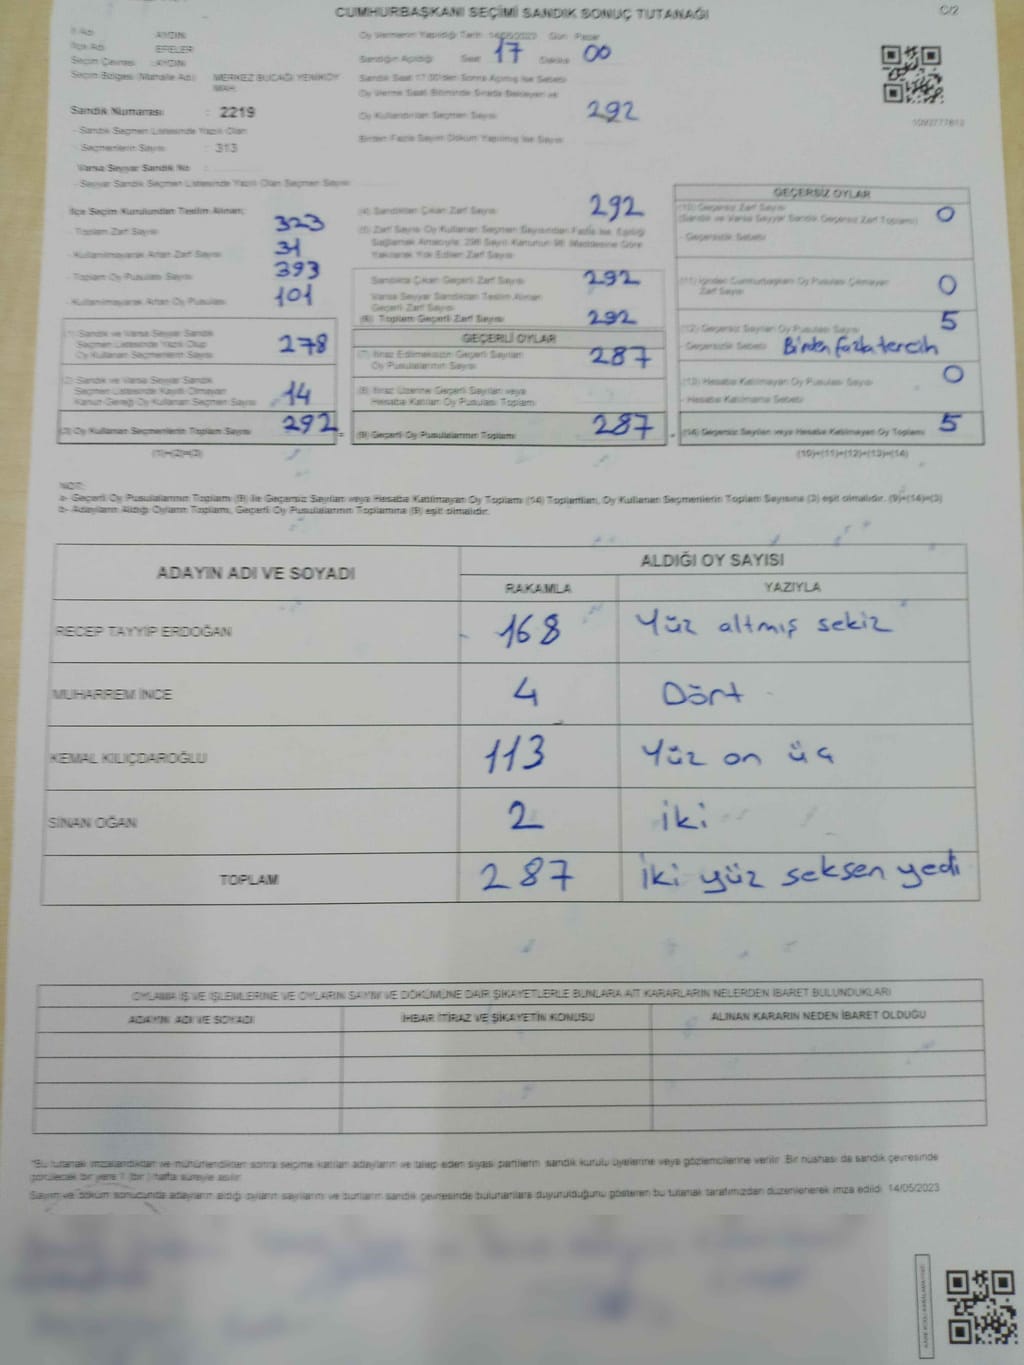 CUMHURBAŞKANI SEÇİMİ SANDIK SONUÇ TUTANAĞI
C/2
İl Adı : AYDIN
İlçe Adı : EFELER
Seçim Çevresi : AYDIN
Seçim Bölgesi (Mahalle Adı) : MERKEZ BUCAĞI YENİKÖY MAH.
Sandık Numarası : 2219
- Sandık Seçmen Listesinde Yazılı Olan
Seçmenlerin Sayısı : 313
Varsa Seyyar Sandık No :
- Seyyar Sandık Seçmen Listesinde Yazılı Olan Seçmen Sayısı
Oy Vermenin Yapıldığı Tarih : 14/05/2023 Gün : Pazar
Sandığın Açıldığı Saat 17 Dakika 00
Sandık Saat 17.00'den Sonra Açılmış ise Sebebi
Oy Verme Saati Bitiminde Sırada Bekleyen ve
Oy Kullandırılan Seçmen Sayısı 292
Birden Fazla Sayım Döküm Yapılmış ise Sayısı
1092777612
İlçe Seçim Kurulundan Teslim Alınan;
- Toplam Zarf Sayısı 323
- Kullanılmayarak Artan Zarf Sayısı 31
- Toplam Oy Pusulası Sayısı 393
- Kullanılmayarak Artan Oy Pusulası 101
(1) Sandık ve Varsa Seyyar Sandık
Seçmen Listesinde Yazılı Olup
Oy Kullanan Seçmenlerin Sayısı 278
(2) Sandık ve Varsa Seyyar Sandık
Seçmen Listesinde Kayıtlı Olmayan
Kanun Gereği Oy Kullanan Seçmen Sayısı 14
(3) Oy Kullanan Seçmenlerin Toplam Sayısı 292
(1)+(2)=(3)
(4) Sandıktan Çıkan Zarf Sayısı 292
(5) Zarf Sayısı Oy Kullanan Seçmen Sayısından Fazla ise, Eşitliği
Sağlamak Amacıyla, 298 Sayılı Kanunun 98. Maddesine Göre
Yakılarak Yok Edilen Zarf Sayısı
Sandıkta Çıkan Geçerli Zarf Sayısı 292
Varsa Seyyar Sandıktan Teslim Alınan
Geçerli Zarf Sayısı
(6) Toplam Geçerli Zarf Sayısı 292
GEÇERLİ OYLAR
(7) İtiraz Edilmeksizin Geçerli Sayılan
Oy Pusulalarının Sayısı 287
(8) İtiraz Üzerine Geçerli Sayılan veya
Hesaba Katılan Oy Pusulası Toplamı
(9) Geçerli Oy Pusulalarının Toplamı 287
GEÇERSİZ OYLAR
(10) Geçersiz Zarf Sayısı 0
(Sandık ve Varsa Seyyar Sandık Geçersiz Zarf Toplamı)
- Geçersizlik Sebebi
(11) İçinden Cumhurbaşkanı Oy Pusulası Çıkmayan
Zarf Sayısı 0
(12) Geçersiz Sayılan Oy Pusulası Sayısı 5
- Geçersizlik Sebebi Birden fazla tercih
(13) Hesaba Katılmayan Oy Pusulası Sayısı 0
- Hesaba Katılmama Sebebi
(14) Geçersiz Sayılan veya Hesaba Katılmayan Oy Toplamı 5
(10)+(11)+(12)+(13)=(14)
NOT:
a- Geçerli Oy Pusulalarının Toplamı (9) ile Geçersiz Sayılan veya Hesaba Katılmayan Oy Toplamı (14) Toplamları, Oy Kullanan Seçmenlerin Toplam Sayısına (3) eşit olmalıdır. (9)+(14)=(3)
b- Adayların Aldığı Oyların Toplamı, Geçerli Oy Pusulalarının Toplamına (9) eşit olmalıdır.
ADAYIN ADI VE SOYADI
ALDIĞI OY SAYISI
RAKAMLA YAZIYLA
RECEP TAYYİP ERDOĞAN 168 Yüz altmış sekiz
MUHARREM İNCE 4 Dört
KEMAL KILIÇDAROĞLU 113 Yüz on üç
SİNAN OĞAN 2 İki
TOPLAM 287 İki yüz seksen yedi
OYLAMA İŞ VE İŞLEMLERİNE VE OYLARIN SAYIM VE DÖKÜMÜNE DAİR ŞİKAYETLERLE BUNLARA AİT KARARLARIN NELERDEN İBARET BULUNDUKLARI
ADAYIN ADI VE SOYADI İHBAR İTİRAZ VE ŞİKAYETİN KONUSU ALINAN KARARIN NEDEN İBARET OLDUĞU
*Bu tutanak imzalandıktan ve mühürlendikten sonra seçime katılan adayların ve talep eden siyasi partilerin sandık kurulu üyelerine veya gözlemcilerine verilir. Bir nüshası da sandık çevresinde
görülecek bir yere 1 (bir) hafta süreyle asılır.
Sayım ve döküm sonucunda adayların aldığı oyların sayılarını ve bunların sandık çevresinde bulunanlara duyurulduğunu gösteren bu tutanak tarafımızdan düzenlenerek imza edildi. 14/05/2023